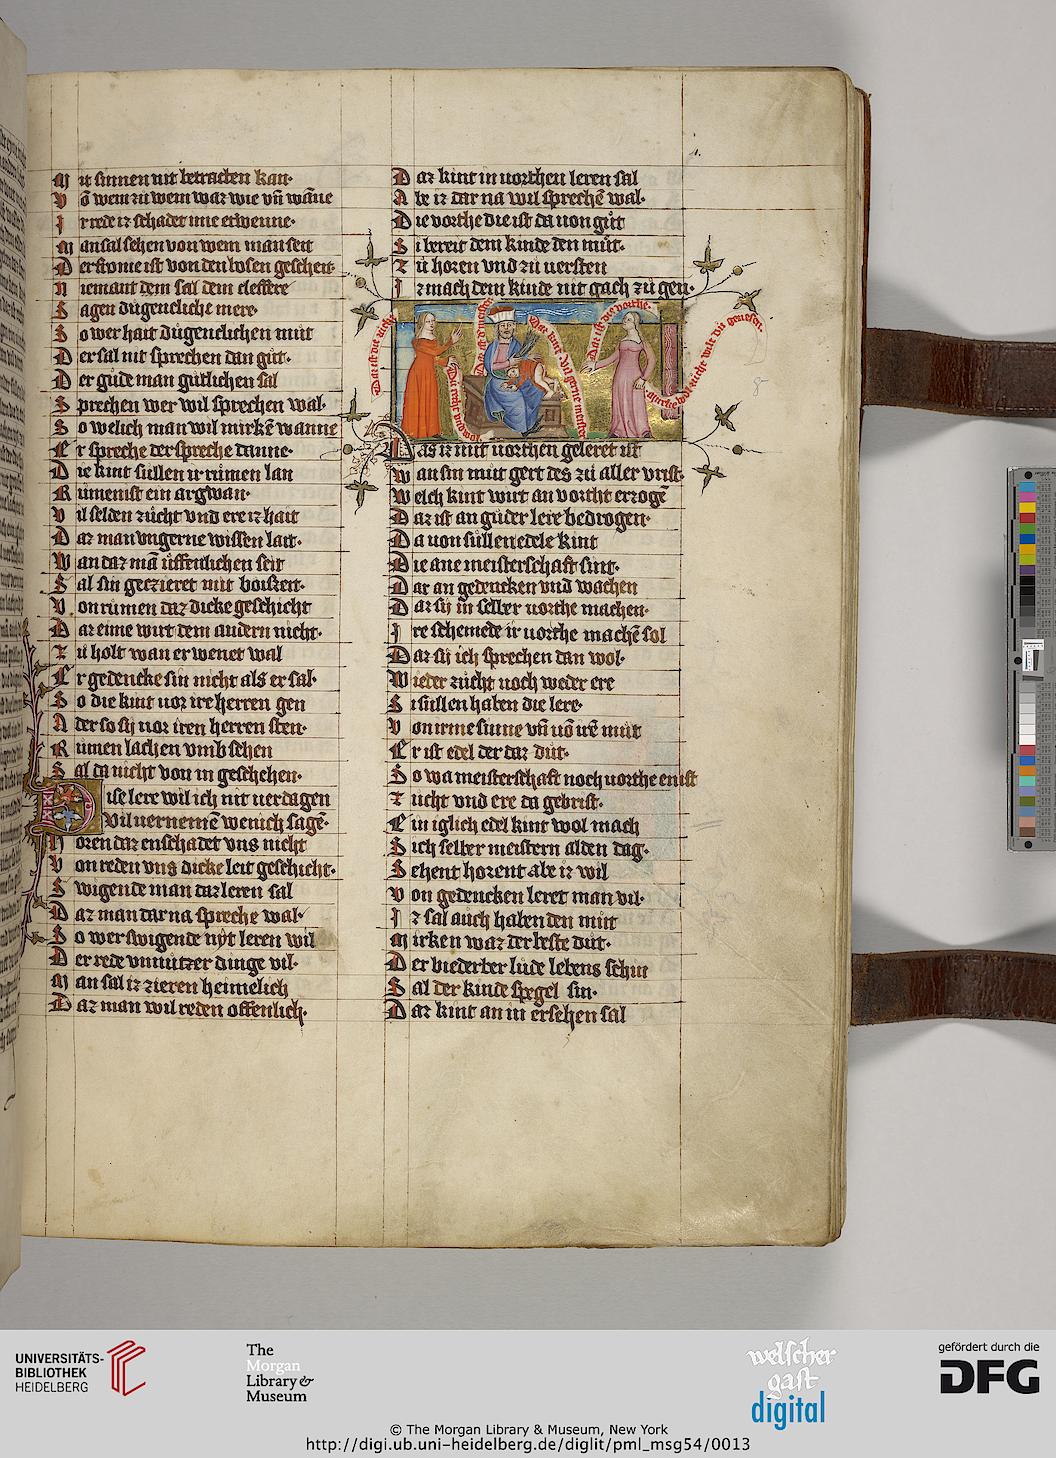 Mit sinnen nit betrachten kan·
Võ wem zů wem waz wie vñ wãne
Ir rede iz schadet
Man sal sehen von wem man seit
von den bosen geschen·
Niemant dem sal dem cleffere
Sagen důgenclicht mere·
So wer hait důgenclichen mut
Der sal nit sprechen dan gůt·
Der gůde man gůtlichen sal
Sprechen wer wil sprechen wal·
So welich man wil mirkẽ wanne
Er spreche der spreche danne·
Die kint sůllen ir růmen lan
Růmen ist ein argwan·
Vil selden zůcht vnd ere iz hait
Daz man vngerne wissen lait·
Wan daz mã uffenlichen seit
Sal sin geczieret mit
Von růmen daz dicke geschicht
Daz eime wirt dem andern nicht·
Zů holt wan er wenet wal
Er gedencke sin nicht als er sal·
So die kint vor ire herren gen
Ader so sy vor iren herren sten·
Růmen lachen vmb sehen
Sal da nicht von in geschehen·
Dise lere wil ich nit verdagen
Vil vernemẽ wenich sagẽ·
Horen daz enschadet vns nicht
Von reden vns dicke leit geschicht·
Swigende man daz leren sal
Daz man dar na spreche wal·
So wer swigende nyt leren wil
Der rede vnnutzer dinge vil·
Man sal iz zieren heimelich
Daz man wil reden offenlich·
Daz kint in vorthen leren sal
Abe iz dar na wil sprechẽ wal·
Die vorthe die ist da von gůt
Si bereit dem kinde den můt·
Zů horen vnd zů versten
Iz mach dem kinde nit gach zů gen·
Daz ist die zucht
Daz ist d meister
Daz ist die vorthe·
wilt du genesen·
Daz iz mit vorthen geleret ist
Wan sin můt gert des zů aller vrist·
Welch kint wirt an vortht erzogẽ
Daz ist an gůder lere bedrogen·
Da von sůllen edele kint
Die ane meisterschaft sint·
Dar an gedencken vnd wachen
Daz sy in selber vorthe machen·
Ire schemede ir vorthe machẽ sol
Daz sy ich sprechen dan wol·
Wieder zůcht noch weder ere
Si sůllen haben die lere·
Von irme sinne vñ võ irẽ můt
Er ist edel der daz důt·
So wa meisterschaft noch vorthe enist
Zucht vnd ere da gebrist·
Ein iglich edel kint wol mach
Sich selber meistern alden dag·
Sehent horent abe iz wil
Von gedencken leret man vil·
Iz sal auch haben den můt
Mirken waz der beste důt·
Der biederber lůde lebens schin
Sal der kinde spegel sin·
Daz kint an in ersehen sal
UNIVERSITÄTS-
BIBLIOTHEK
HEIDELBERG
The
Morgan
Library &
Museum
welscher
gast
digital
gefördert durch die
DFG
© The Morgan Library & Museum, New York
http://digi.ub.uni-heidelberg.de/diglit/pml_msg54/0013